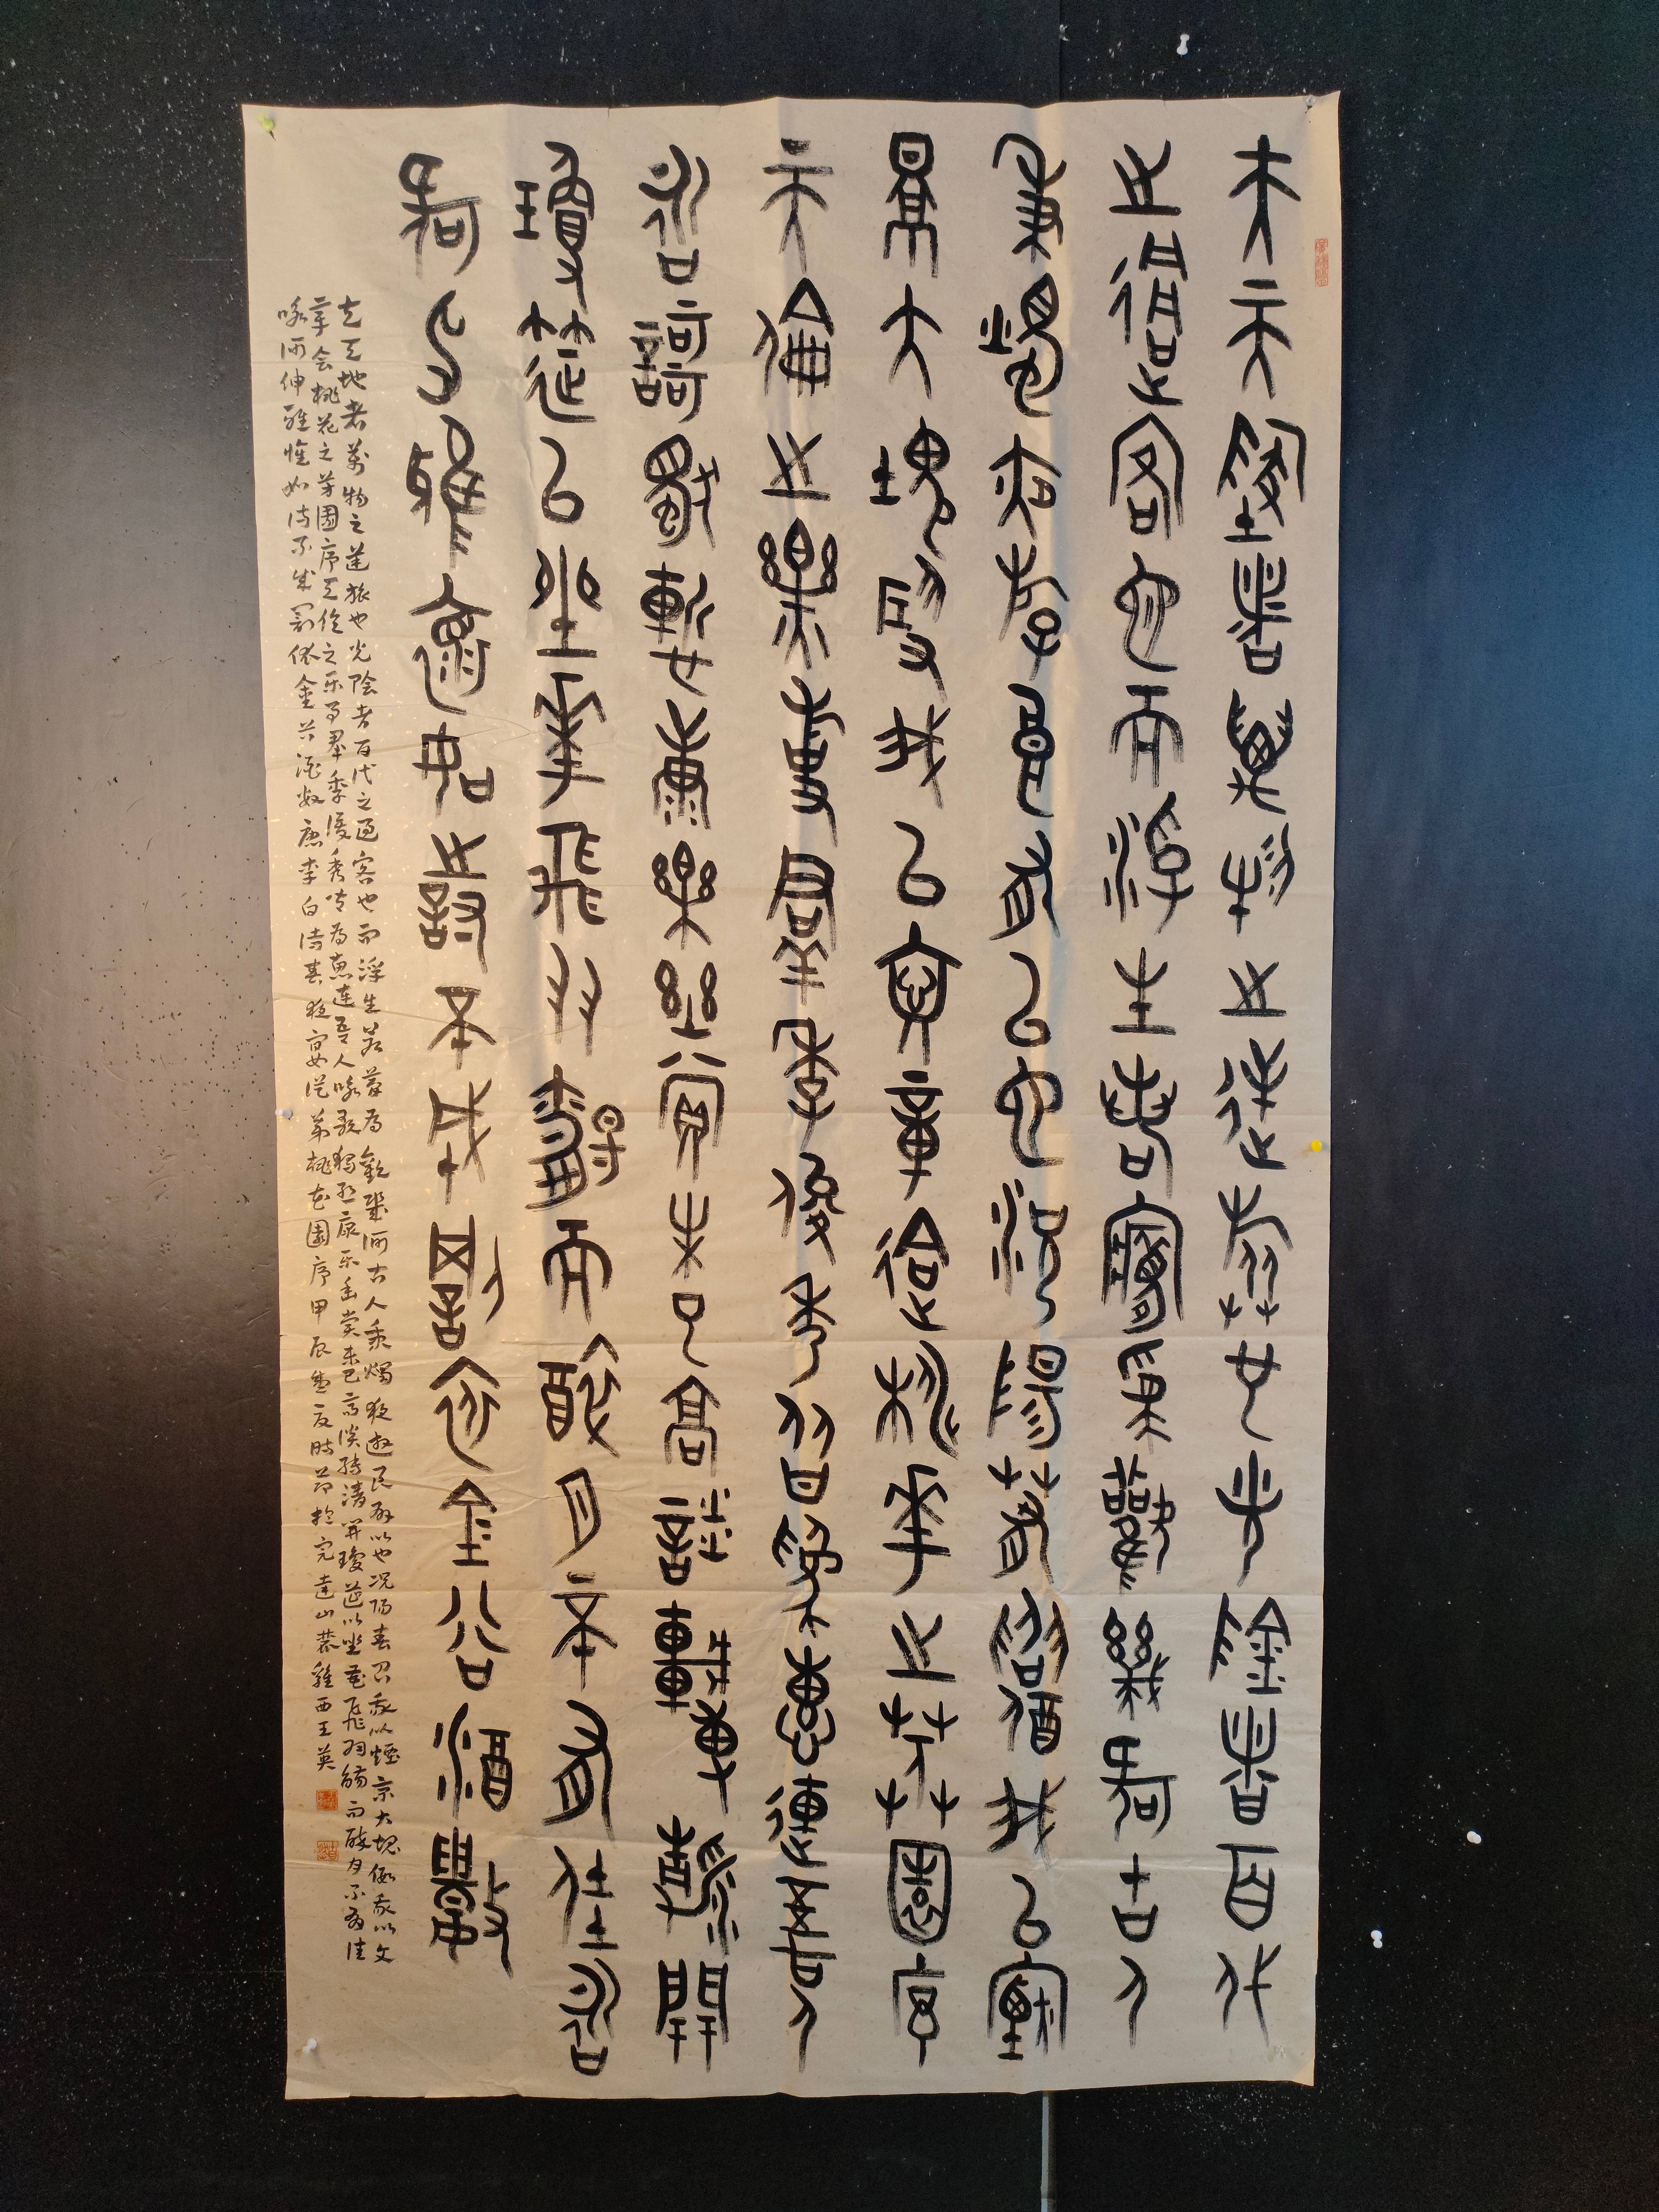 夫天地者萬物之逆旅也光陰者百代
之過客也而浮生若夢為歡幾何古人
秉燭夜遊良有以也況陽春召我以煙
景大塊假我以文章會桃花之芳園序
天倫之樂事群季俊秀皆為惠連吾人
詠歌獨慚康樂幽賞未已高談轉清開
瓊筵以坐花飛羽觴而醉月不有佳詠
何伸雅懷如詩不成罰依金谷酒數
夫天地者萬物之逆旅也光陰者百代之過客也而浮生若夢為歡幾何古人秉燭夜遊良有以也況陽春召我以煙景大塊假我以文
章会桃花之芳園序天倫之乐事群季俊秀皆為惠連吾人咏歌獨慚康乐幽賞未已高談轉清開瓊筵以坐花飛羽觴而醉月不有佳
咏何伸雅懷如诗不成罰依金谷酒數唐李白诗春夜宴從弟桃花園序甲辰 於完達山 雞西王英